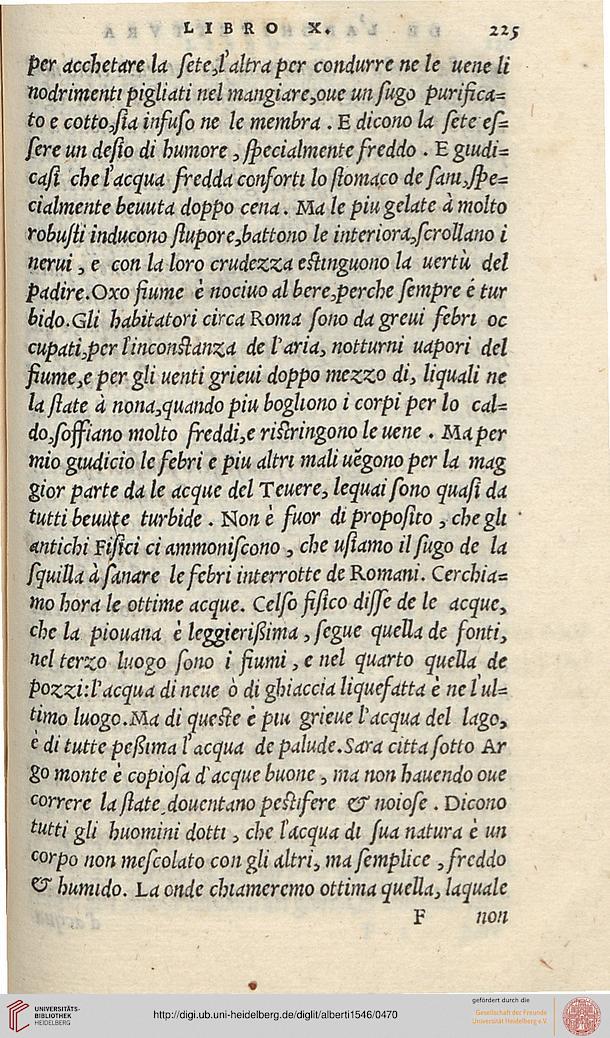 LIBRO X. 225
per acchetare la ſete,l'altra per condurre ne le uene li
nodrimenti pigliati nel mangiare,oue un ſugo purifica=
to e cotto,ſia infuſo ne le membra . E dicono la ſete eſ=
ſere un deſio di humore , ſpecialmente freddo . E giudi=
caſi che l'acqua fredda conforti lo ſtomaco de ſani,ſpe=
cialmente beuuta doppo cena. Ma le piu gelate à molto
robuſti inducono ſtupore,battono le interiora,ſcrollano i
nerui , e con la loro crudezza eſtinguono la uertù del
padire.Oxo fiume è nociuo al bere,perche ſempre è tur
bido.Gli habitatori circa Roma ſono da greui febri oc
cupati,per l'inconſtanza de l'aria, notturni uapori del
fiume,e per gli uenti grieui doppo mezzo di, liquali ne
la ſtate à nona,quando piu bogliono i corpi per lo cal=
do,ſoffiano molto freddi,e riſtringono le uene . Ma per
mio giudicio le febri e piu altri mali uẽgono per la mag
gior parte da le acque del Teuere, lequai ſono quaſi da
tutti beuute turbide . Non è fuor di propoſito , che gli
antichi Fiſici ci ammoniſcono , che uſiamo il ſugo de la
ſquilla à ſanare le febri interrotte de Romani. Cerchia=
mo hora le ottime acque. Celſo fiſico diſſe de le acque,
che la piouana è leggierißima , ſegue quella de fonti,
nel terzo luogo ſono i fiumi , e nel quarto quella de
pozzi:l'acqua di neue ò di ghiaccia liquefatta è ne l'ul=
timo luogo.Ma di queſte è piu grieue l'acqua del lago,
è di tutte peßima l'acqua de palude.Sara citta ſotto Ar
go monte è copioſa d'acque buone , ma non hauendo oue
correre la ſtate,douentano peſtifere & noioſe . Dicono
tutti gli huomini dotti , che l'acqua di ſua natura è un
corpo non meſcolato con gli altri, ma ſemplice , freddo
& humido. La onde chiameremo ottima quella, laquale
F non
UNIVERSITÄTS-
BIBLIOTHEK
HEIDELBERG
http://digi.ub.uni-heidelberg.de/diglit/alberti1546/0470
gefördert durch die
Gesellschaft der Freunde
Universität Heidelberg e.V.